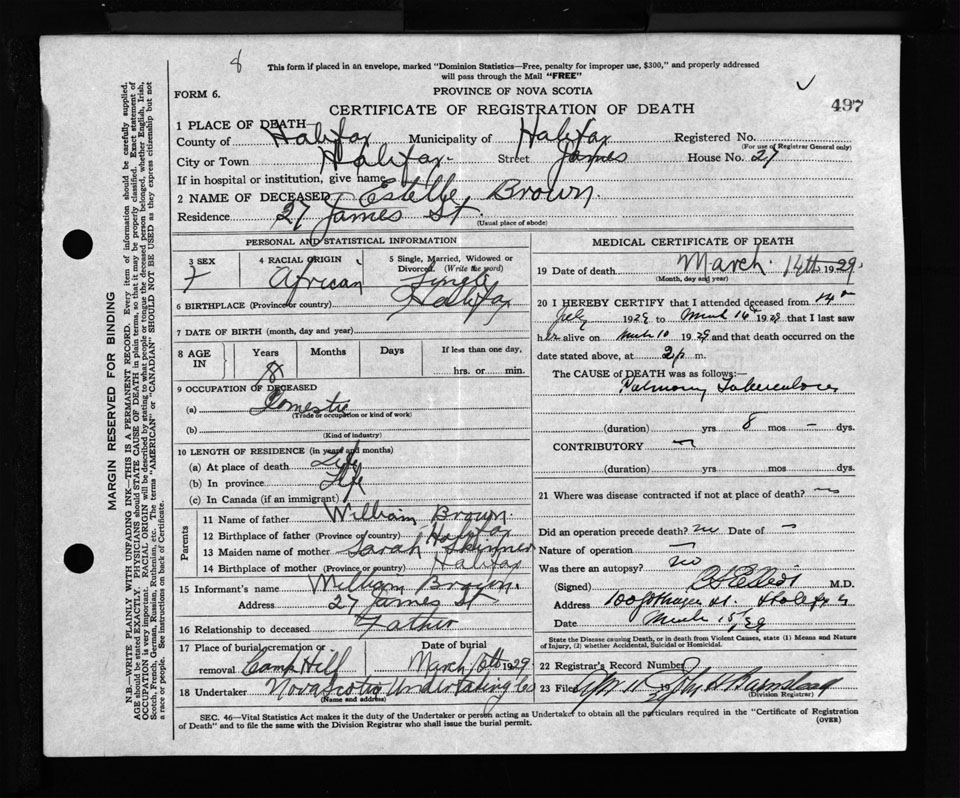 8
This form if placed in an envelope, marked "Dominion Statistics—Free, penalty for improper use, $300," and properly addressed
will pass through the Mail "FREE"
FORM 6.
PROVINCE OF NOVA SCOTIA
CERTIFICATE OF REGISTRATION OF DEATH
497
1 PLACE OF DEATH
County of Halifax Municipality of Halifax Registered No.
(For use of Registrar General only)
City or Town Halifax Street James House No. 27
If in hospital or institution, give name
2 NAME OF DECEASED Estelle Brown
Residence 27 James St.
(Usual place of abode)
PERSONAL AND STATISTICAL INFORMATION
3 SEX 4 RACIAL ORIGIN 5 Single, Married, Widowed or
Divorced. (Write the word)
F African Single
6 BIRTHPLACE (Province or country) Halifax
7 DATE OF BIRTH (month, day and year)
8 AGE IN Years Months Days If less than one day,
8 hrs. or min.
9 OCCUPATION OF DECEASED
(a) Domestic
(Trade or occupation or kind of work)
(b)
(Kind of industry)
10 LENGTH OF RESIDENCE (in years and months)
(a) At place of death Life
(b) In province Life
(c) In Canada (if an immigrant)
Parents
11 Name of father William Brown.
12 Birthplace of father (Province or country) Halifax
13 Maiden name of mother Sarah Skinner
14 Birthplace of mother (Province or country) Halifax
15 Informant's name William Brown.
Address 27 James St
16 Relationship to deceased Father
17 Place of burial, cremation or removal Camp Hill
Date of burial
March 16th 1929
18 Undertaker Nova Scotia Undertaking Co
(Name and address)
MEDICAL CERTIFICATE OF DEATH
19 Date of death March 14th 1929.
(Month, day and year)
20 I HEREBY CERTIFY that I attended deceased from
July 1929 to March 14 1929 that I last saw
her alive on March 10 1929 and that death occurred on the
date stated above, at 2 p m.
The CAUSE OF DEATH was as follows:—
Pulmonary Tuberculosis
(duration) yrs 8 mos – dys.
CONTRIBUTORY
(duration) yrs. mos. dys.
21 Where was disease contracted if not at place of death?
Did an operation precede death? no Date of –
Nature of operation
Was there an autopsy? no
(Signed) M.D.
Address
Date March 15/29
State the Disease causing Death, or in death from Violent Causes, state (1) Means and Nature
of Injury, (2) whether Accidental, Suicidal or Homicidal.
22 Registrar's Record Number
23 Filed Apr 11 1929
(Division Registrar)
SEC. 46—Vital Statistics Act makes it the duty of the Undertaker or person acting as Undertaker to obtain all the particulars required in the "Certificate of Registration
of Death" and to file the same with the Division Registrar who shall issue the burial permit.
(OVER)
MARGIN RESERVED FOR BINDING
N.B.—WRITE PLAINLY WITH UNFADING INK—THIS IS A PERMANENT RECORD. Every item of information should be carefully supplied.
AGE should be stated EXACTLY. PHYSICIANS should STATE CAUSE OF DEATH in plain terms, so that it may be properly classified. Exact statement of
OCCUPATION is very important. RACIAL ORIGIN will be described by stating to what people or race the deceased person belonged, whether English, Irish,
Scotch, French, German, Russian, Ruthenian, etc. The terms "AMERICAN" or "CANADIAN" SHOULD NOT BE USED as they express citizenship but not
a race or people. See instructions on back of Certificate.